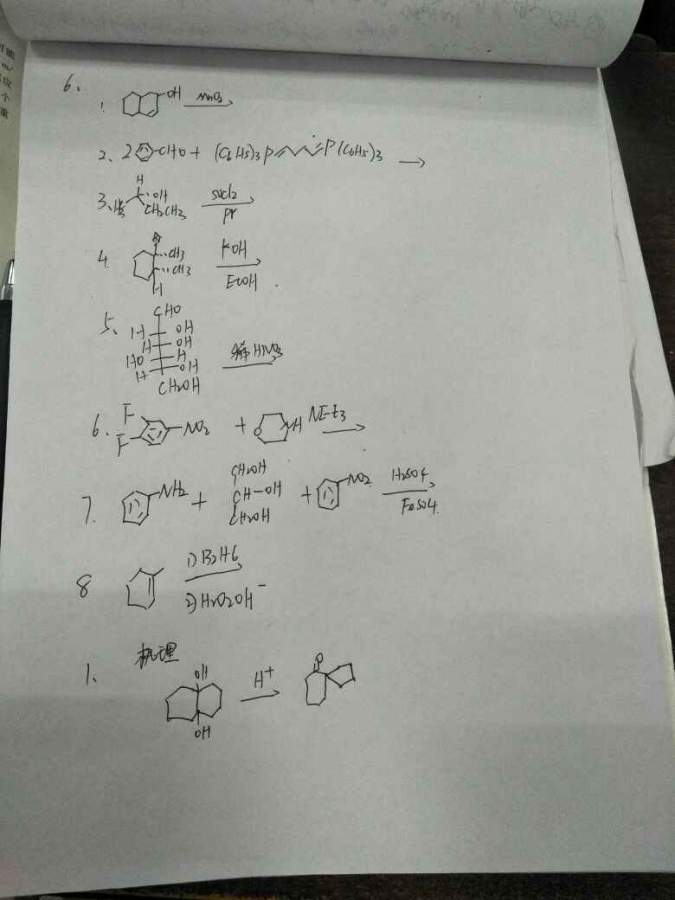 6.
1. OH MnO2
2. 2 CHO + (C6H5)3P P(C6H5)3
3. H
OH
H3C CH2CH3 SOCl2
Pr
4. Br
CH3
CH3 KOH
H EtOH
5. CHO
H OH
H OH
HO H
H OH
CH2OH 稀HNO3
6. F
F NO2 + O NH NEt3
7. NH2 + CH2OH
CH-OH
CH2OH + NO2 H2SO4
FeSO4
8 1) B2H6
2) H2O2OH-
机理
1. OH
OH H+ O